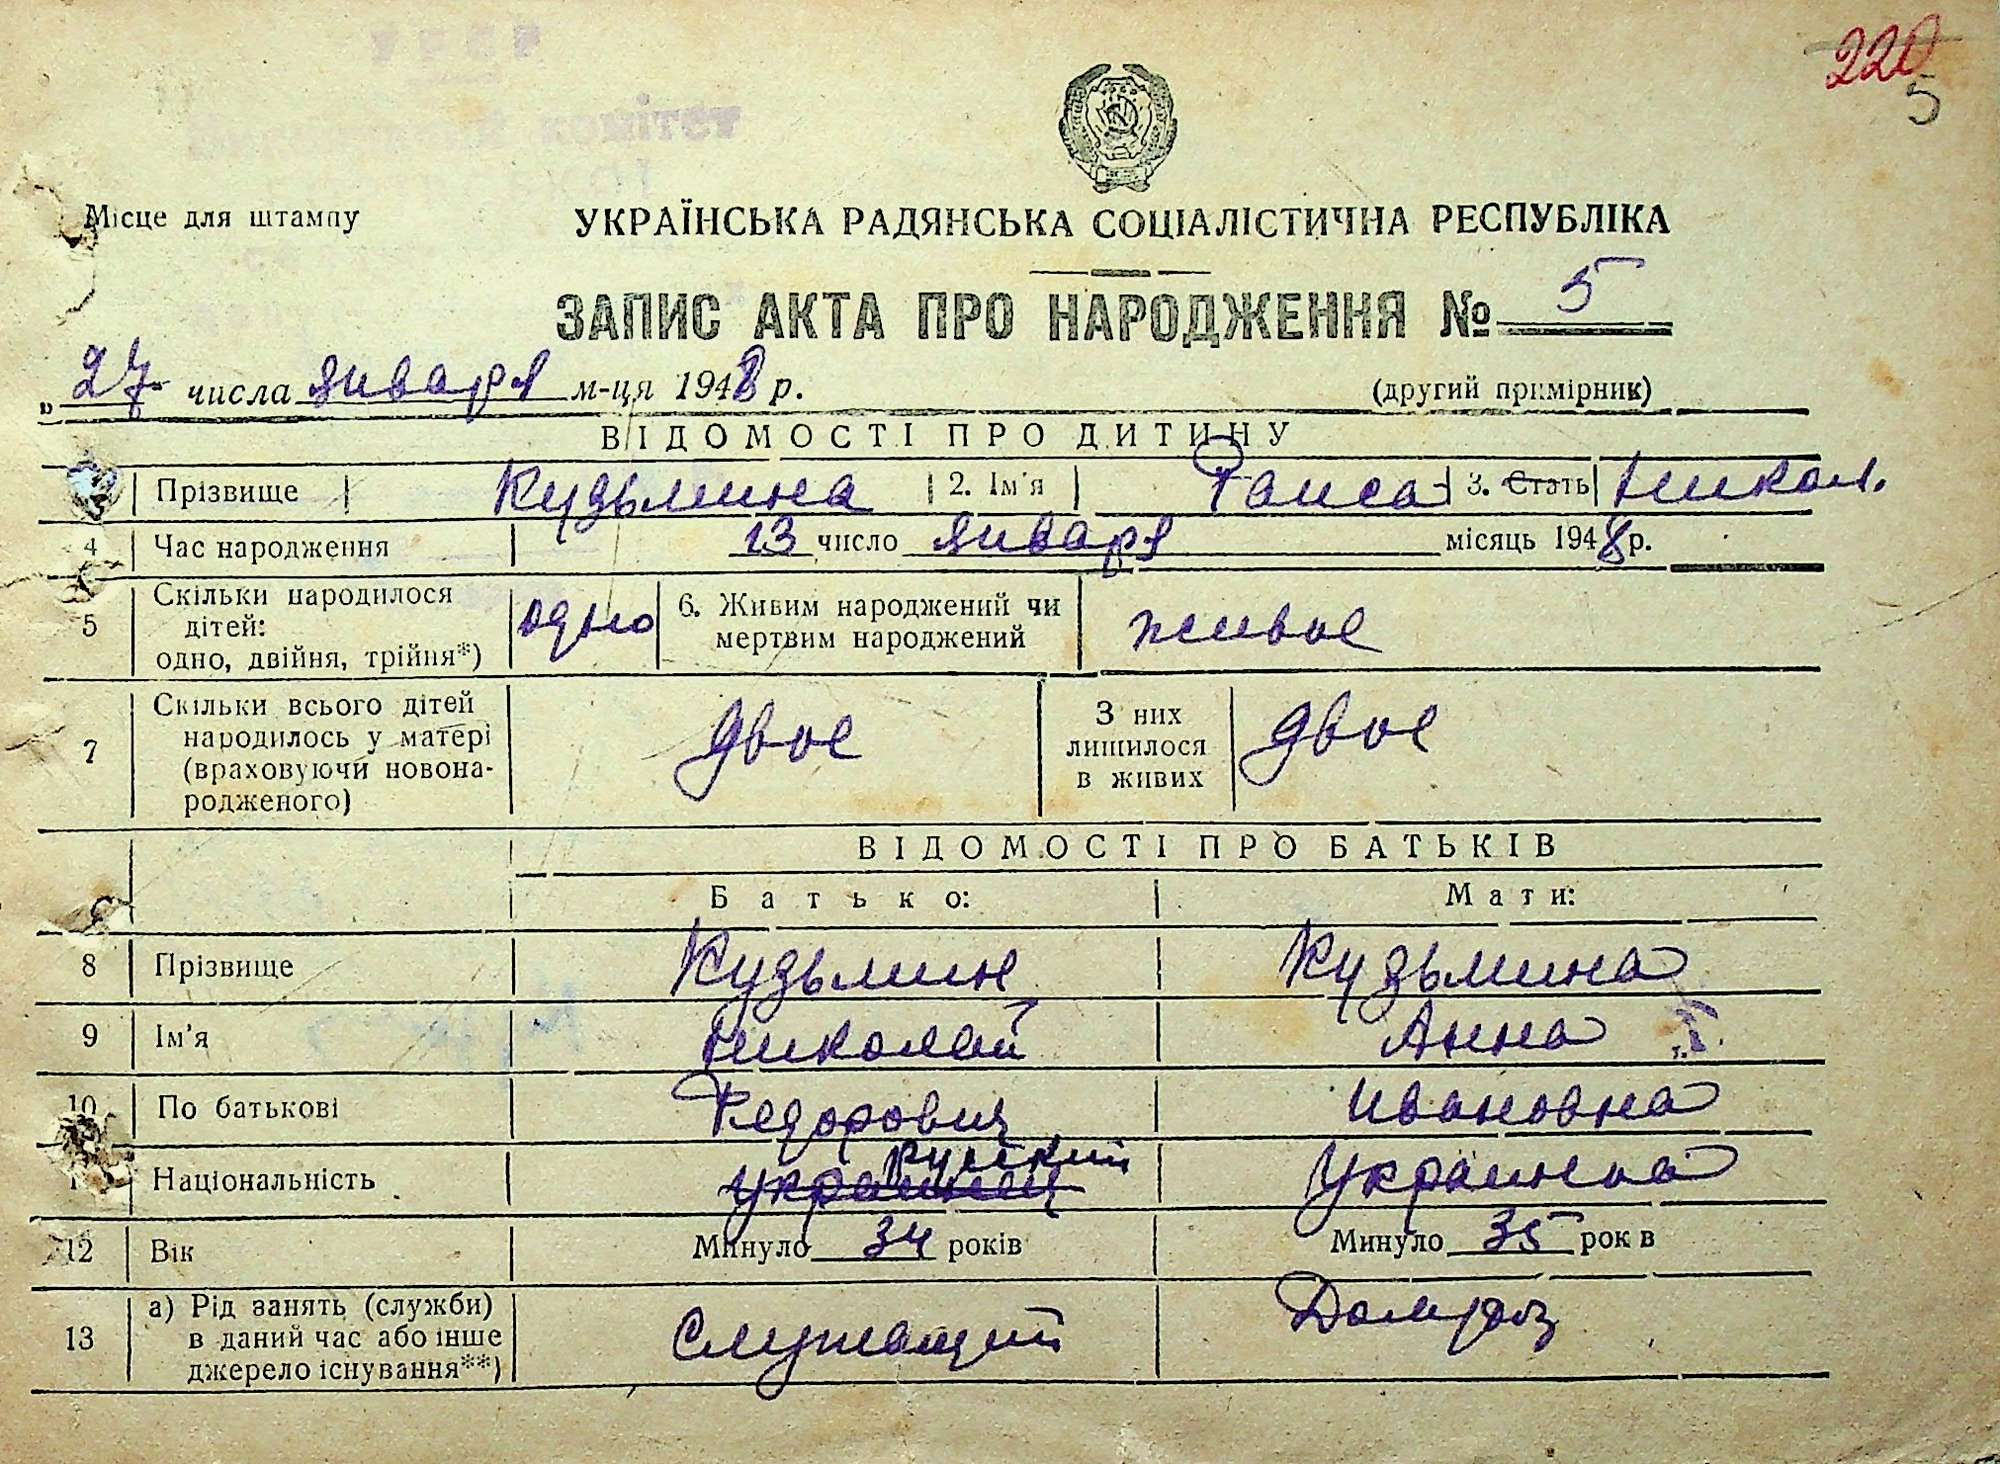 220
5
УРСР
комітет
Місце для штампу
УКРАЇНСЬКА РАДЯНСЬКА СОЦІАЛІСТИЧНА РЕСПУБЛІКА
ЗАПИС АКТА ПРО НАРОДЖЕННЯ № 5
„ 27 числа января м-ця 1948 р. (другий примірник)
ВІДОМОСТІ ПРО ДИТИНУ
Прізвище Кузьмина 2. Ім'я Раиса 3. Стать Никол.
4 Час народження 13 число января місяць 1948 р.
5 Скільки народилося дітей: одно, двійня, трійня*) одно 6. Живим народжений чи мертвим народжений живое
7 Скільки всього дітей народилось у матері (враховуючи новонародженого) двое З них лишилося в живих двое
ВІДОМОСТІ ПРО БАТЬКІВ
Батько: Мати:
8 Прізвище Кузьмин Кузьмина
9 Ім'я Николай Анна
10 По батькові Федорович Ивановна
русский
Національність украинец Украинка
12 Вік Минуло 34 років Минуло 35 рок в
13 а) Рід занять (служби) в даний час або інше джерело існування**) Служащий Домхоз